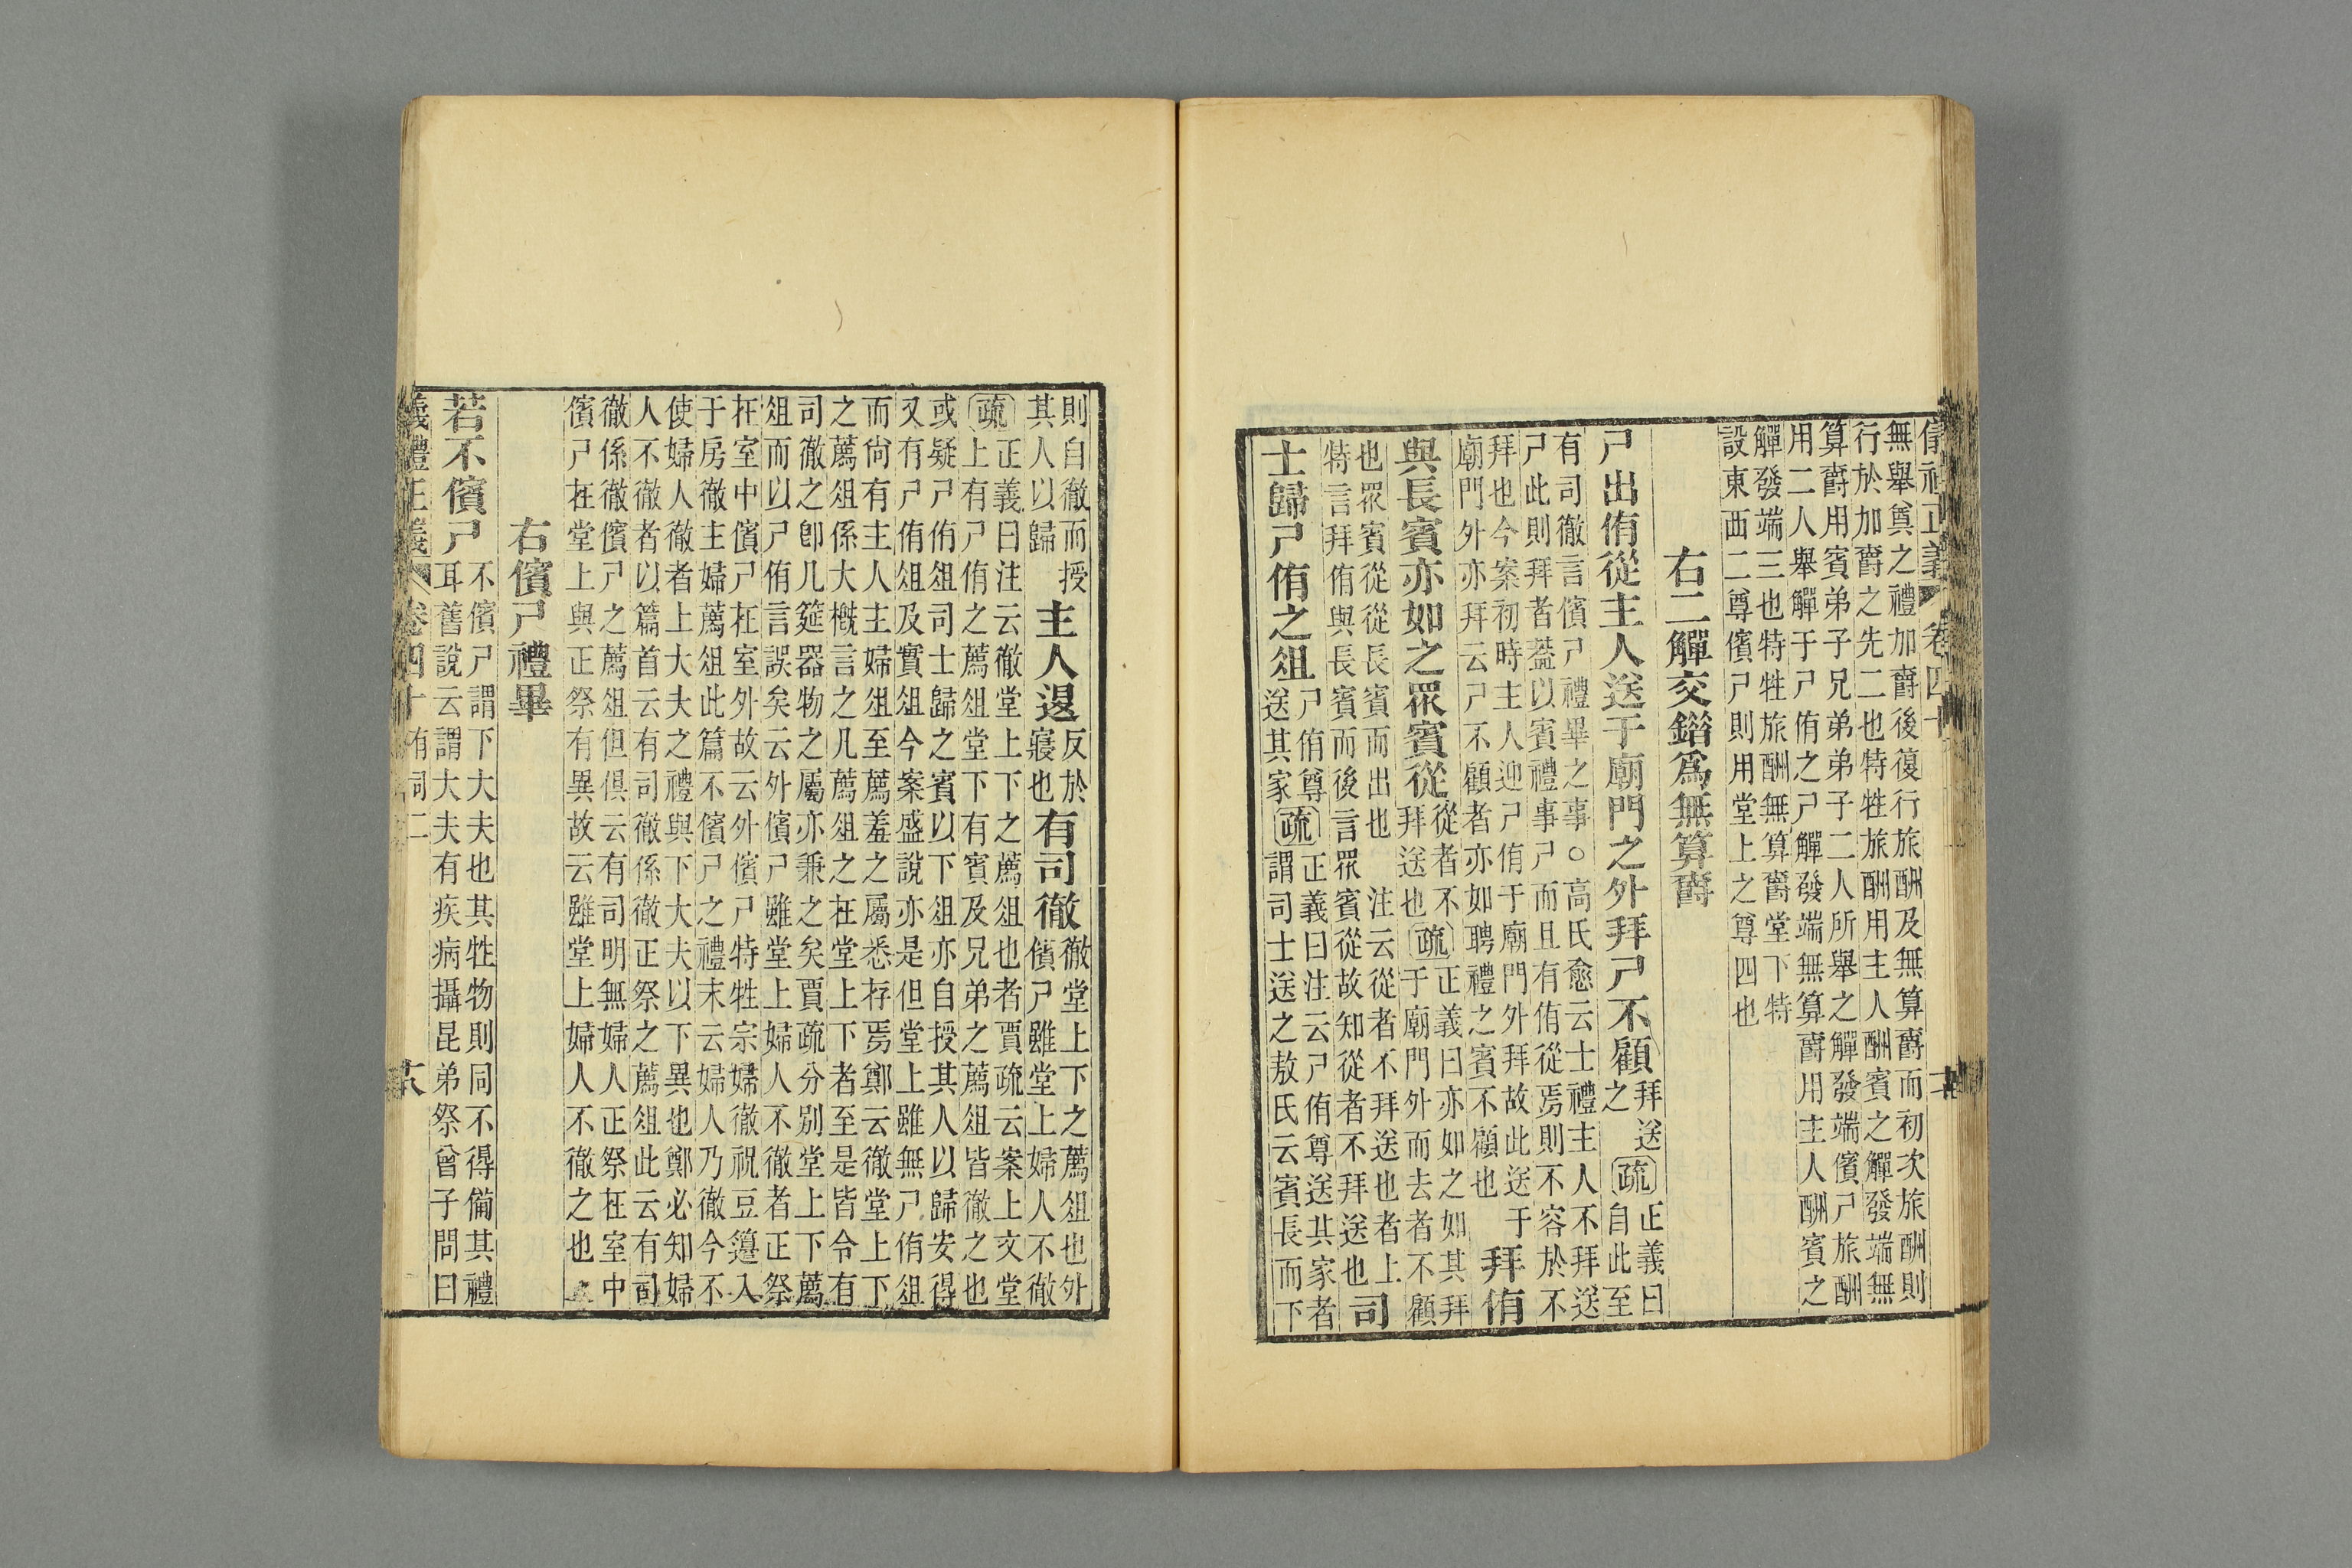 儀禮正義 卷四十
無舉奠之禮加爵後復行旅酬及無算爵而初次旅酬則
行於加爵之先二也特牲旅酬用主人酬賓之觶發端無
算爵用賓弟子兄弟弟子二人所舉之觶發端儐尸旅酬
用二人舉觶于尸侑之尸觶發端無算爵用主人酬賓之
觶發端三也特牲旅酬無算爵堂下特
設東西二尊儐尸則用堂上之尊四也
右二觶交錯爲無算爵
尸出侑從主人送于廟門之外拜尸不顧拜送之疏正義曰自此至
有司徹言儐尸禮畢之事○高氏愈云士禮主人不拜送
尸此則拜者葢以賓禮事尸而且有侑從焉則不容於不
拜也今案初時主人迎尸侑于廟門外拜故此送于
廟門外亦拜云尸不顧者亦如聘禮之賓不顧也拜侑
與長賓亦如之眾賓從從者不拜送也疏正義曰亦如之如其拜于廟門外而去者不顧
也眾賓從從長賓而出也 注云從者不拜送也者上
特言拜侑與長賓而後言眾賓從故知從者不拜送也司
士歸尸侑之俎尸侑尊送其家疏正義曰注云尸侑尊送其家者謂司士送之敖氏云賓長而下
則自徹而授
其人以歸主人退反於寢也有司徹徹堂上下之薦俎也外儐尸雖堂上婦人不徹
疏正義曰注云徹堂上下之薦俎也者賈疏云案上文堂
上有尸侑之薦俎堂下有賓及兄弟之薦俎皆徹之也
或疑尸侑俎司士歸之賓以下俎亦自授其人以歸安得
又有尸侑俎及賓俎今案盛說亦是但堂上雖無尸侑俎
而尙有主人主婦俎至薦羞之屬悉存焉鄭云徹堂上下
之薦俎係大槪言之凡薦俎之在堂上下者至是皆令有
司徹之卽几筵器物之屬亦兼之矣賈疏分別堂上下薦
俎而以尸侑言誤矣云外儐尸雖堂上婦人不徹者正祭
在室中儐尸在室外故云外儐尸特牲宗婦徹祝豆籩入
于房徹主婦薦俎此篇不儐尸之禮末云婦人乃徹今不
使婦人徹者上大夫之禮與下大夫以下異也鄭必知婦
人不徹者以篇首云有司徹係徹正祭之薦俎此云有司
徹係徹儐尸之薦俎但俱云有司明無婦人正祭在室中
儐尸在堂上與正祭有異故云雖堂上婦人不徹之也
右儐尸禮畢
若不儐尸不儐尸謂下大夫也其牲物則同不得備其禮耳舊說云謂大夫有疾病攝昆弟祭曾子問曰
儀禮正義 卷四十 有司二 十八